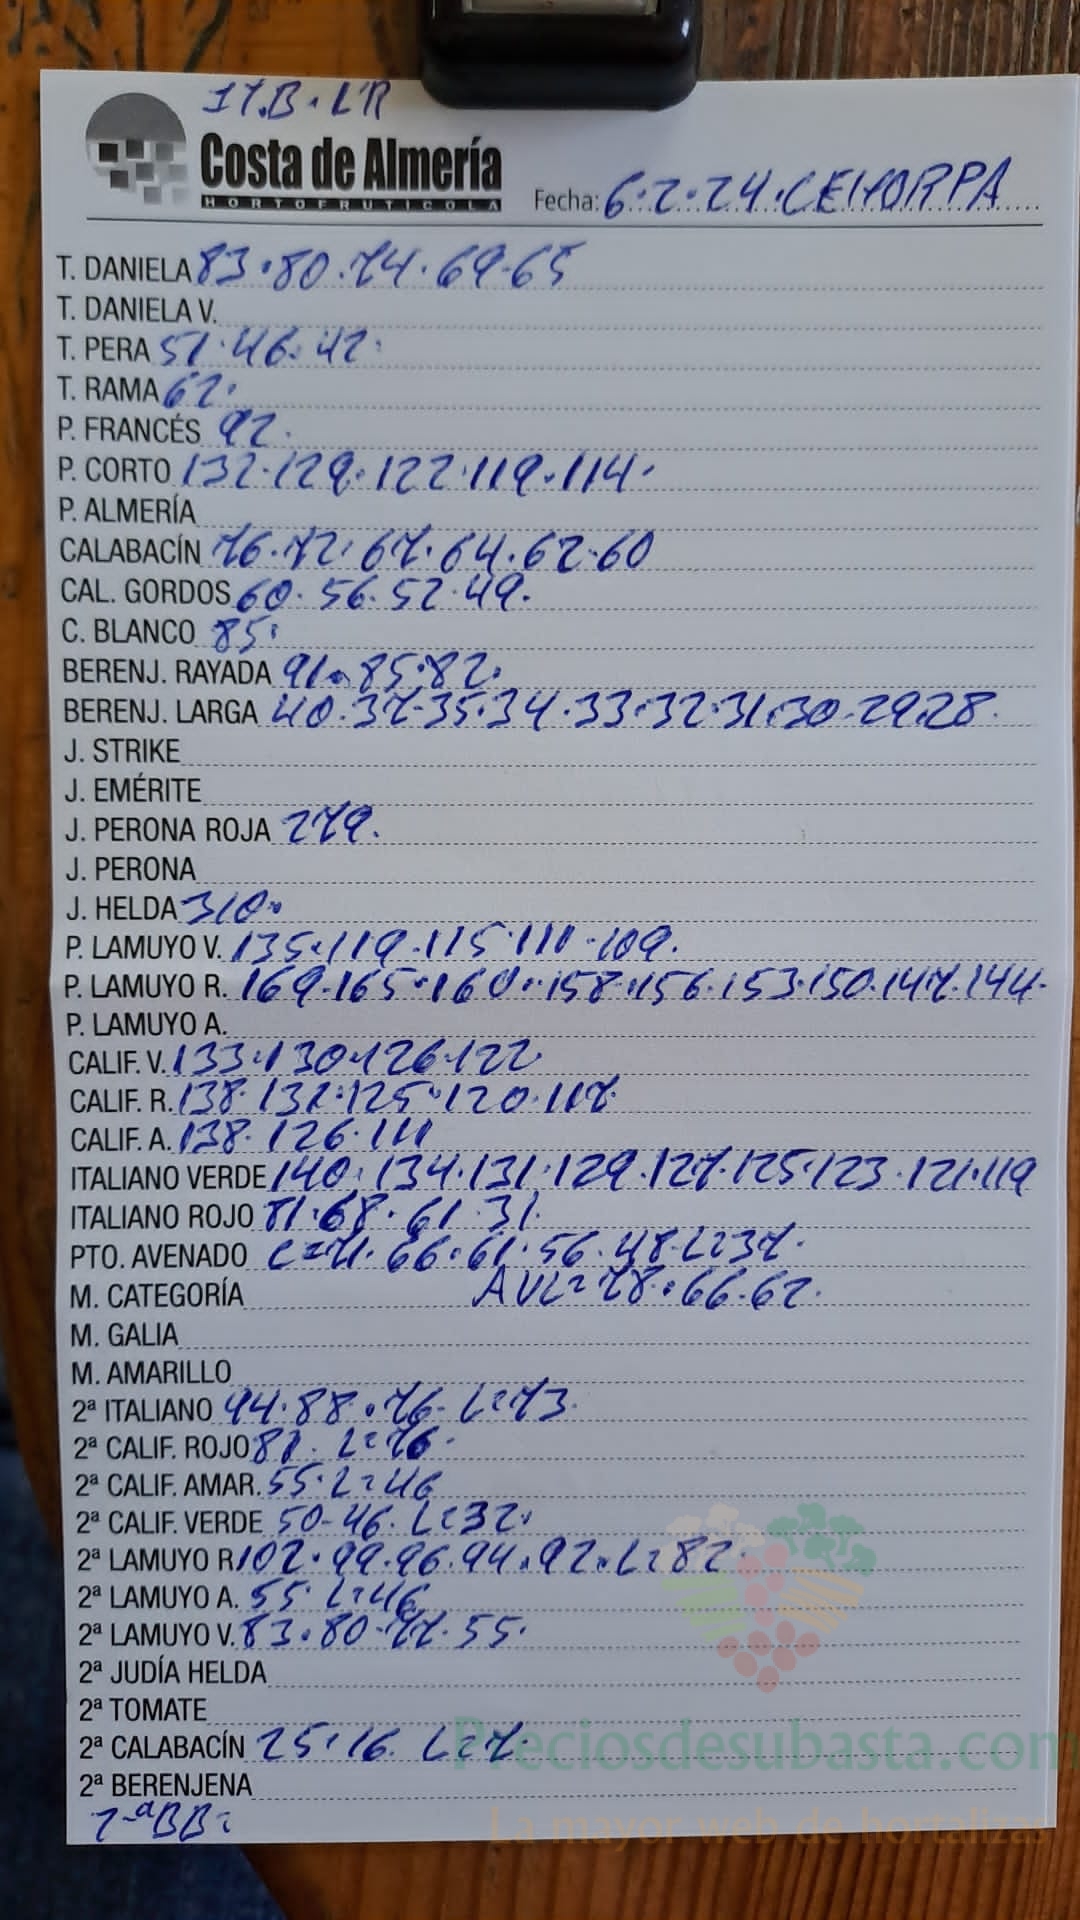 17.B. L'R
Costa de Almería
HORTOFRUTICOLA
Fecha: 6.2.24.CEHORPA
T. DANIELA 83.80.74.69.65
T. DANIELA V.
T. PERA 51.46.42.
T. RAMA 62.
P. FRANCÉS 92.
P. CORTO 132.129.122.119.114.
P. ALMERÍA
CALABACÍN 76.72.67.64.62.60
CAL. GORDOS 60.56.52.49.
C. BLANCO 85.
BERENJ. RAYADA 91.85.82.
BERENJ. LARGA 40.37.35.34.33.32.31.30.29.28.
J. STRIKE
J. EMÉRITE
J. PERONA ROJA 279.
J. PERONA
J. HELDA 310.
P. LAMUYO V. 135.119.115.111.109.
P. LAMUYO R. 169.165.160.158.156.153.150.147.144.
P. LAMUYO A.
CALIF. V. 133.130.126.122
CALIF. R. 138.132.125.120.117.
CALIF. A. 138.126.111
ITALIANO VERDE 140.134.131.129.127.125.123.121.119
ITALIANO ROJO 81.68.61.31.
PTO. AVENADO C=71.66.61.56.48.L=37.
M. CATEGORÍA AVL=78.66.62.
M. GALIA
M. AMARILLO
2ª ITALIANO 94.88.76.L=73.
2ª CALIF. ROJO 81.L=76.
2ª CALIF. AMAR. 55.L=46
2ª CALIF. VERDE 50-46.L=32.
2ª LAMUYO R 102.99.96.94.92.L=82.
2ª LAMUYO A. 55.L=46
2ª LAMUYO V. 83.80.77.55.
2ª JUDÍA HELDA
2ª TOMATE
2ª CALABACÍN 25.16.L=7.
2ª BERENJENA
2-ªBB=
Preciosdesubasta.com
La mayor web de hortalizas